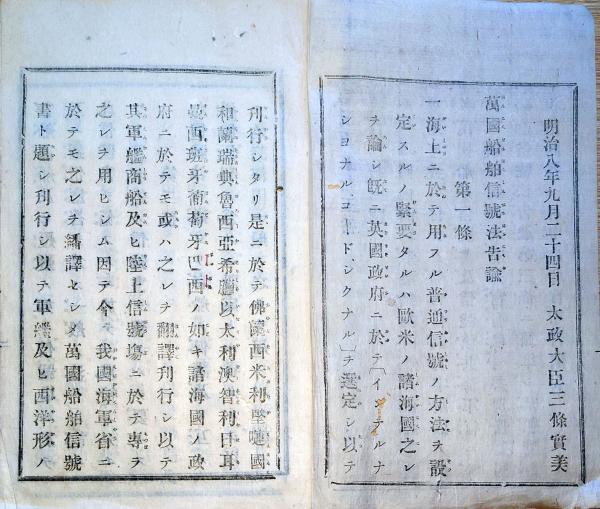 明治八年九月二十四日　太政大臣三條實美
萬國船舶信號法告諭
第一條
一海上ニ於テ用フル普通信號ノ方法ヲ設
定スルノ緊要タルハ歐米ノ諸海國之レ
ヲ論シ旣ニ英國政府ニ於テ「インテルナ
ショナル、コード、シクナル」ヲ選定シ以テ
刊行シタリ是ニ於テ佛蘭西米利堅嗹國
和蘭瑞典魯西亞希臘以太利澳智利日耳
曼西班牙葡萄牙巴西ノ如キ諸海國ノ政
府ニ於テモ或ハ之レヲ翻譯刊行シ以テ
其軍艦商船及ヒ陸上信號塲ニ於テ專ラ
之レヲ用ヒシム因テ今マ我國海軍省ニ
於テモ之レヲ繙譯セシメ萬國船舶信號
書ト題シ刊行シ以テ軍艦及ヒ西洋形ハ